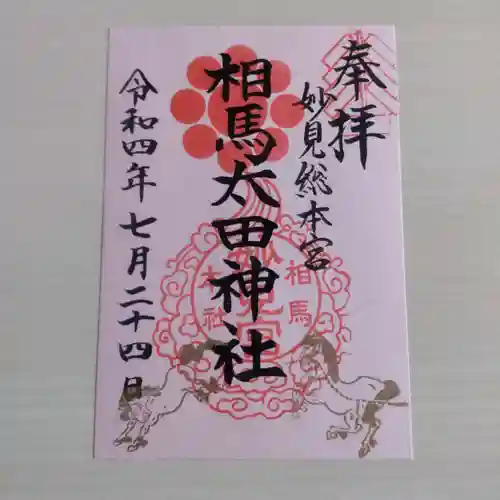 奉拝
妙見総本宮
相馬太田神社
令和四年七月二十四日
相馬
妙見宮
本社